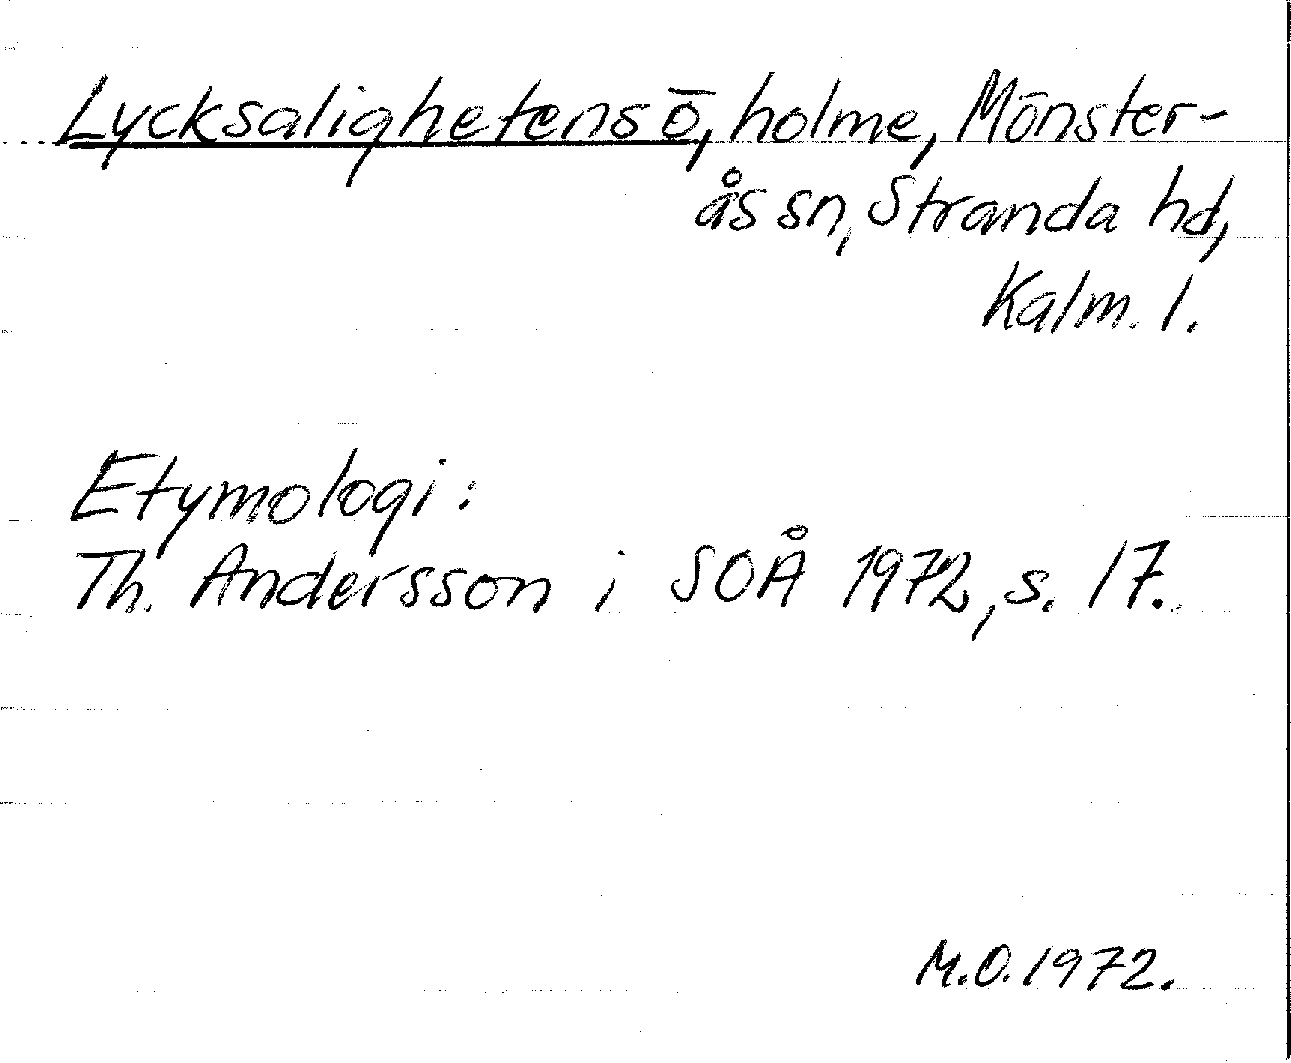 Lycksalighetens ö, holme, Mönster-
ås sn, Stranda hd,
Kalm. l.
Etymologi:
Th. Andersson i SOÅ 1972, s. 17.
M.O. 1972.